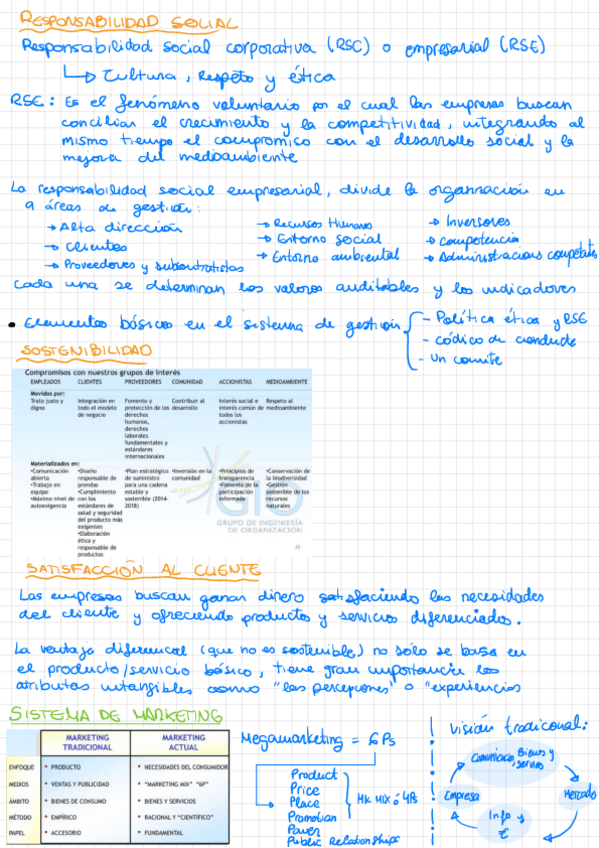 RESPONSABILIDAD SOCIAL
Responsabilidad social corporativa (RSC) o empresarial (RSE)
Cultura, Respeto y ética
RSE: Es el fenómeno voluntario por el cual las empresas buscan
conciliar el crecimiento y la competitividad, integrando al
mismo tiempo el compromiso con el desarrollo social y la
mejora del medioambiente
La responsabilidad social empresarial, divide la organización en
9 áreas de gestión:
→ Alta dirección → Recursos Humanos → Inversores
→ Clientes → Entorno social → competencia
→ Proveedores y subcontratistas → Entorno ambiental → Administraciones competentes
Cada una se determinan los valores auditables y los indicadores
• Elementos básicos en el sistema de gestión
- Política ética y RSE
- código de conducta
- un comite
SOSTENIBILIDAD
Compromisos con nuestros grupos de interés
EMPLEADOS CLIENTES PROVEEDORES COMUNIDAD ACCIONISTAS MEDIOAMBIENTE
Movidos por:
Trato justo y digno
Integración en todo el modelo de negocio
Fomento y protección de los derechos humanos, derechos laborales fundamentales y estándares internacionales
Contribuir al desarrollo
Interés social e interés común de todos los accionistas
Respeto al medioambiente
Materializados en:
•Comunicación abierta
•Trabajo en equipo
•Máximo nivel de autoexigencia
•Diseño responsable de prendas
•Cumplimiento con los estándares de salud y seguridad del producto más exigentes
•Elaboración ética y responsable de productos
•Plan estratégico de suministro para una cadena estable y sostenible (2014-2018)
•Inversión en la comunidad
•Principios de transparencia
•Fomento de la participación informada
•Conservación de la biodiversidad
•Gestión sostenible de los recursos naturales
GIO
GRUPO DE INGENIERÍA
DE ORGANIZACIÓN
42
SATISFACCIÓN AL CLIENTE
Las empresas buscan ganar dinero satisfaciendo las necesidades
del cliente y ofreciendo productos y servicios diferenciados.
La ventaja diferencial (que no es sostenible) no sólo se basa en
el producto/servicio básico, tiene gran importancia los
atributos intangibles como "las percepciones" o "experiencias
SISTEMA DE MARKETING
MARKETING TRADICIONAL MARKETING ACTUAL
ENFOQUE • PRODUCTO • NECESIDADES DEL CONSUMIDOR
MEDIOS • VENTAS Y PUBLICIDAD • "MARKETING MIX" "6P"
ÁMBITO • BIENES DE CONSUMO • BIENES Y SERVICIOS
MÉTODO • EMPÍRICO • RACIONAL Y "CIENTÍFICO"
PAPEL • ACCESORIO • FUNDAMENTAL
Megamarketing = 6Ps
Product
Price
Place
Promotion
MK MIX ó 4Ps
Power
Public Relationships
Visión tradicional:
Comunicac Bienes y
servicios
Empresa Mercado
Info y
€